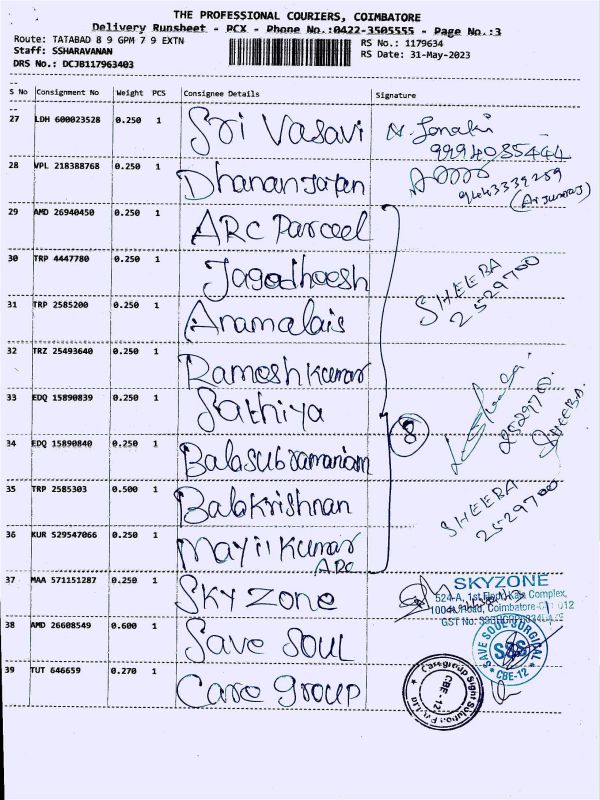 THE PROFESSIONAL COURIERS, COIMBATORE
Delivery Runsheet - PCX - Phone No.:0422-3505555 - Page No.:3
Route: TATABAD 8 9 GPM 7 9 EXTN
RS No.: 1179634
Staff: SSHARAVANAN
RS Date: 31-May-2023
DRS No.: DCJB117963403
S No Consignment No Weight PCS Consignee Details Signature
27 LDH 600023528 0.250 1 Sri Vasavi N. Janaki
9994085444
28 VPL 218388768 0.250 1 Dhananjayan
9443339259
(Arjunraj)
29 AMD 26940450 0.250 1 ARC Parceel
30 TRP 4447780 0.250 1 Jagadheesh
SHEEBA
2529700
31 TRP 2585200 0.250 1 Anamalais
32 TRZ 25493640 0.250 1 Ramesh kumar
33 EDQ 15890839 0.250 1 Sathiya
8
2529700
SHEEBA
34 EDQ 15890840 0.250 1 Balasubramaniam
35 TRP 2585303 0.500 1 Balakrishnan
SHEEBA
2529700
36 KUR 529547066 0.250 1 Mayil kumar
ARC
37 MAA 571151287 0.250 1 Sky Zone
SKYZONE
524-A, 1st Floor, Kala Complex,
100 Road, Coimbatore 012
GST No:
38 AMD 26608549 0.600 1 Save Soul
SAVE SOUL SURGICAL
SSS
CBE-12
39 TUT 646659 0.270 1 Care group
Caregroup Sight Solution Pvt Ltd
CBE-12